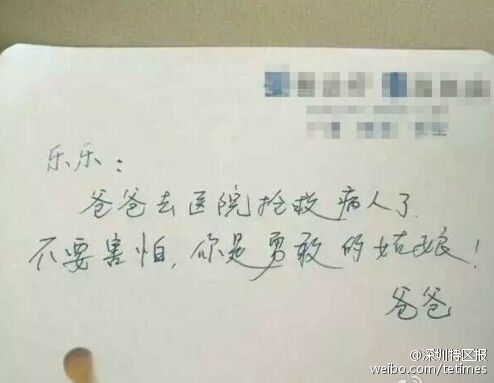 乐乐：
爸爸去医院抢救病人了.
不要害怕,你是勇敢的姑娘!
爸爸
@深圳特区报
weibo.com/tetimes